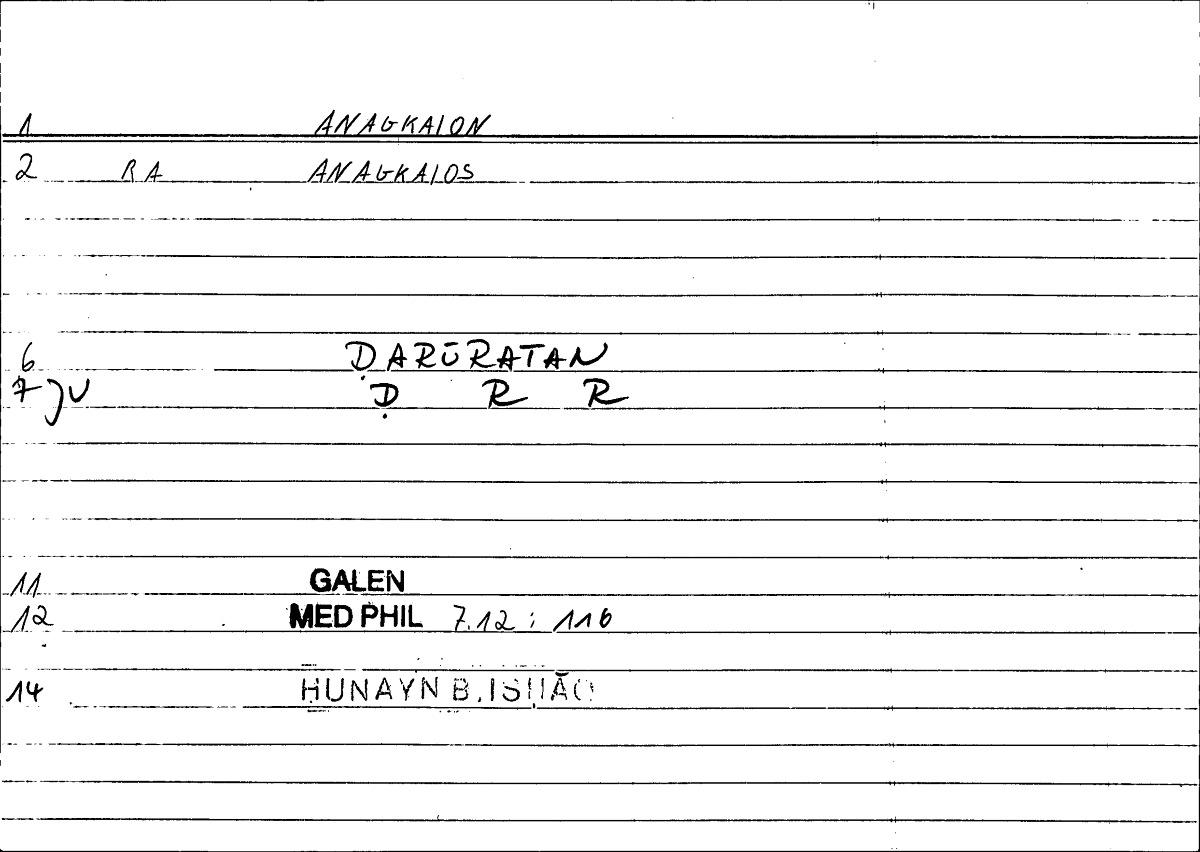 1 ANAGKAION
2 RA ANAGKAIOS
6 ḌARŪRATAN
7 JV Ḍ R R
11 GALEN
12 MED PHIL 7.12 : 116
14 ḤUNAYN B. ISḤĀQ